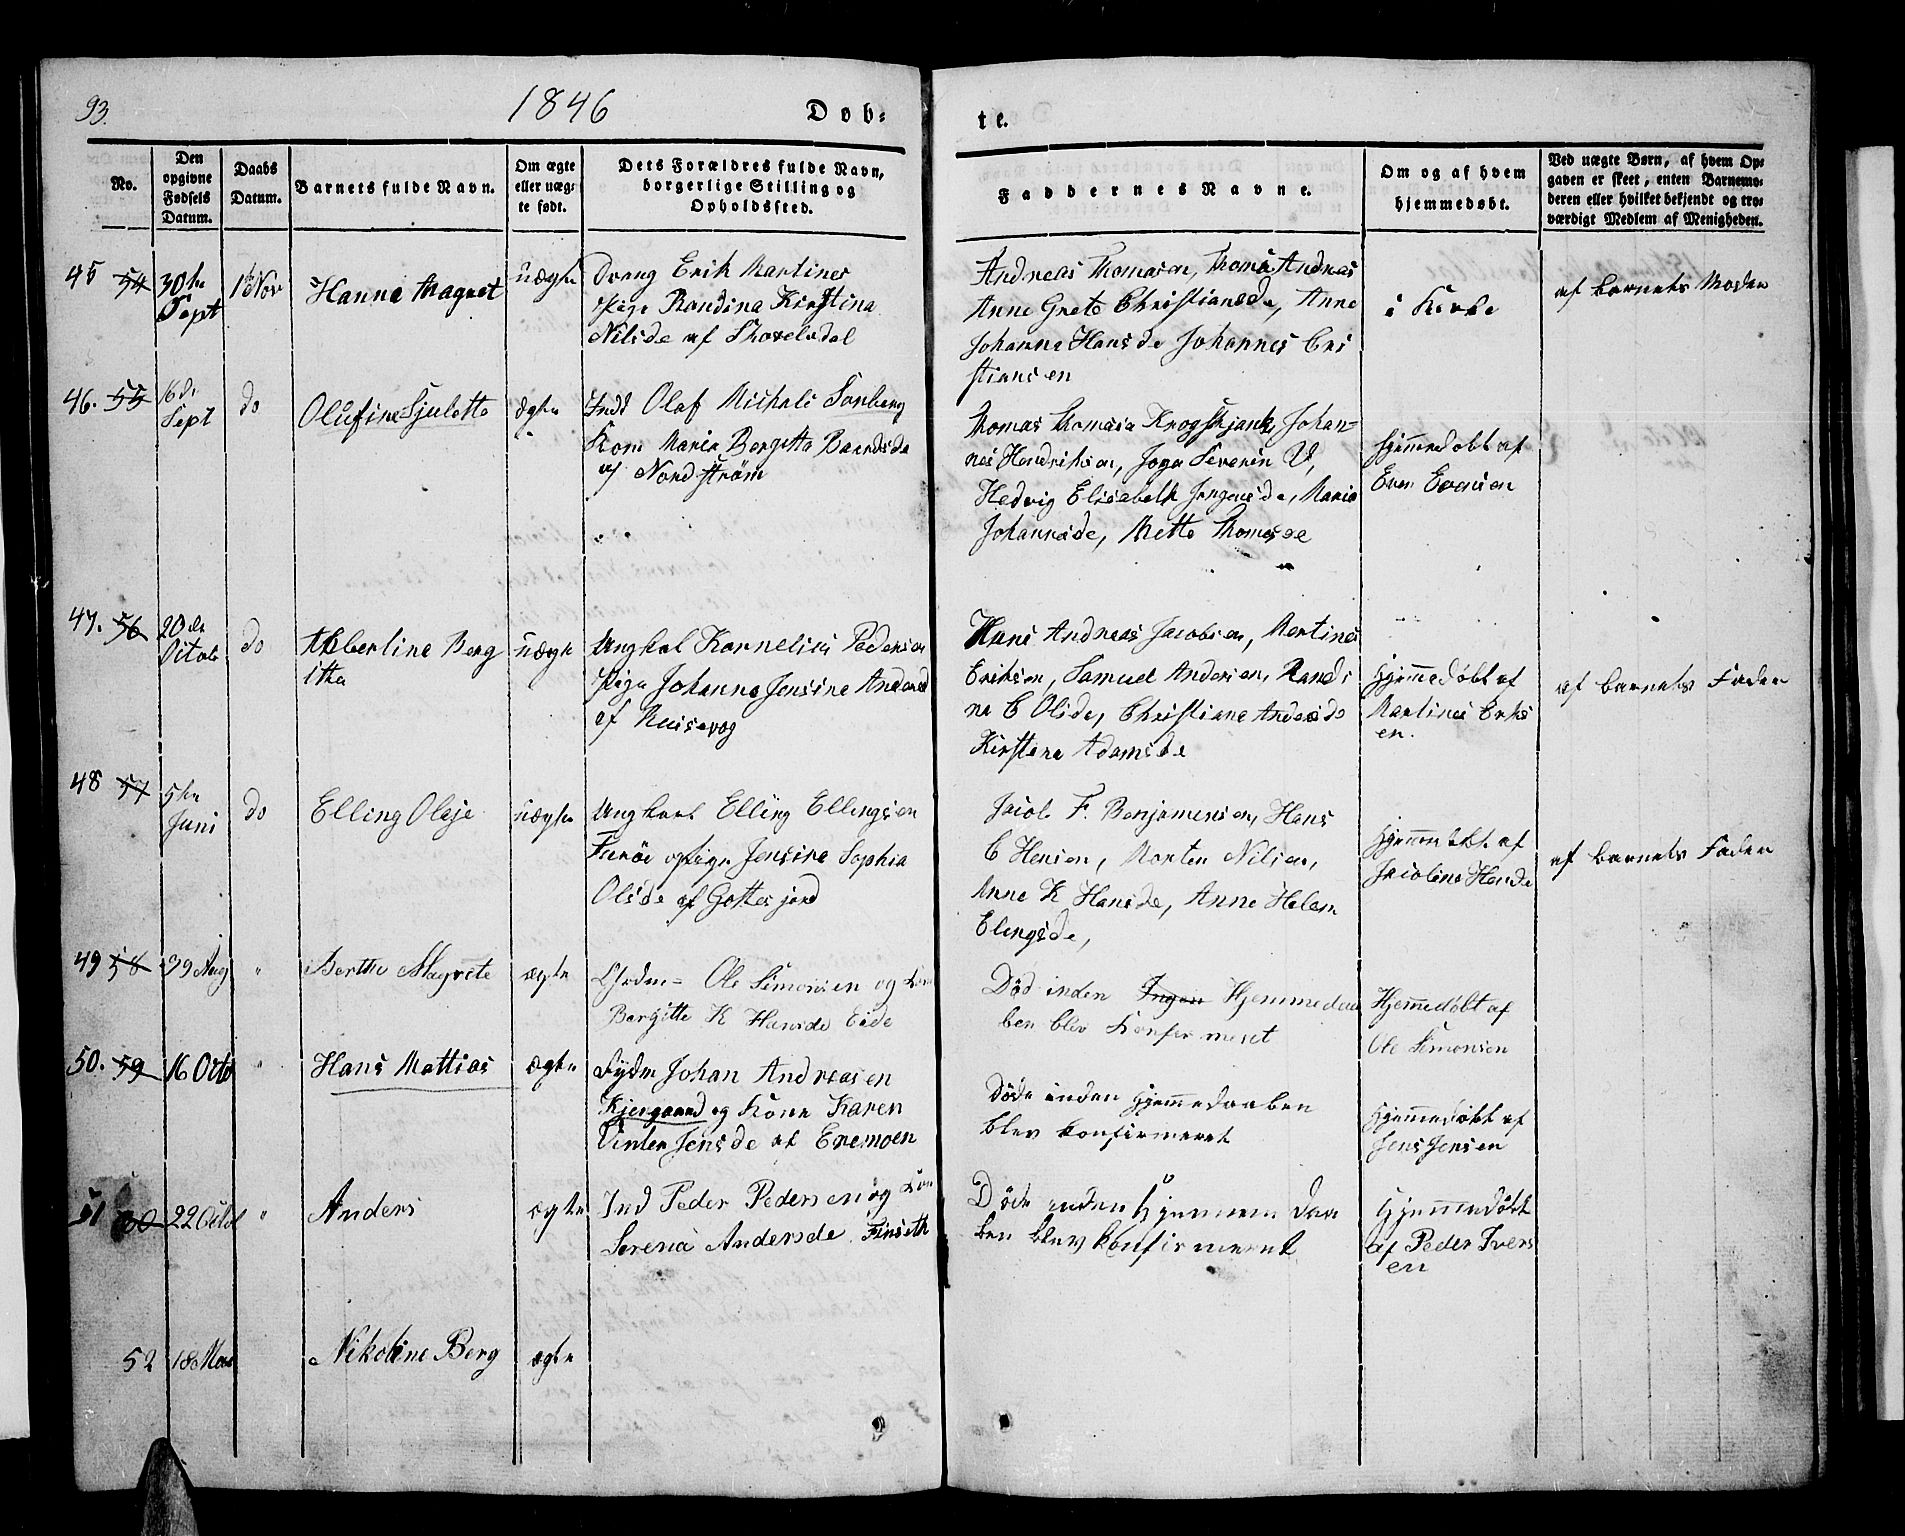 93.
1846
Døb-
te.
No.
Den opgivne Fødsels Datum.
Daabs Datum.
Barnets fulde Navn.
Om ægte eller uægte født.
Dets Forældres fulde Navn, borgerlige Stilling og Opholdssted.
Faddernes Navne.
Om og af hvem hjemmedøbt.
Ved uægte Børn, af hvem Opgaven er skeet, enten Barnemoderen eller hvilket bekjendt og troværdigt Medlem af Menigheden.
45 54 30te Sept 1 Nov Hanna Magret uægte
Dreng Erik Martines
Pige Randina Kirstina
Nilsde af
Andreas Thomasen, Andreas
Anne Grete Christiansde, Anne
Johanna Hansde Johannes Cri
stiansen
i Kirke
af barnets Moder
46. 55 16de Sept do Olufine Sjulotte ægte
Indt Olaf Michals Sonberg
Kone Maria Bergitta
af Nordstrøm
Thomas Johan-
nes Hendriksen, Severin
Hedvig Elisabeth Jørgensde, Maria
Johannesde, Mette Thomasde
hjemmedøbt af
Even Evensen
47. 56 20de Octob do Alberline Berg
itha
uægte
Ungkal Kornelius Pedersen
Pige Johanna Jensine Andersd
af Reisevog
Hans Andreas Jacobsen, Martines
Eriksen, Samuel Andersen, Randi
na C Olsde, Christiane Andersde
Kirstena Adamsde
hjemmedøbt af
Martines Eriks
en.
af barnets Fader
48 57 5te Juni do Elling Oleje uægte
Ungkarl Elling Ellingsen
Pige Jensine Sophia
Olsde af Gottesjord
Jacob F. Benjamensen, Hans
C Hensen, Morten Nilsen,
Anna K Hansde, Anne Helen
Elingsde,
hjemmedøbt af
Jacobine Hansde
af barnets Fader
49 58 29 Aug " Berthe Magrete ægte
Ole Simonsen og Kone
Bergitte K Hansde Eide
Død inden Ingen Hjemmedaa
ben blev Konfirmeret
Hjemmedøbt af
Ole Simonsen
50. 59 16 Octo " Hans Mattias ægte
Johan Andreasen
Kjergaard og Kone Karen
Vinter Jensde af Enemoen
Døde inden hjemmedaaben
blev konfirmeret
hjemmedøbt af
Jens Jensen
51 60 22 Octob " Anders ægte
Ind Peder Pedersen og Kone
Serena Andersde Finseth
Døde inden Hjemmedaa
ben blev konfirmeret
Hjemmedøbt
af Peder Ivers
en
52 18 Nikoline Berg ægte